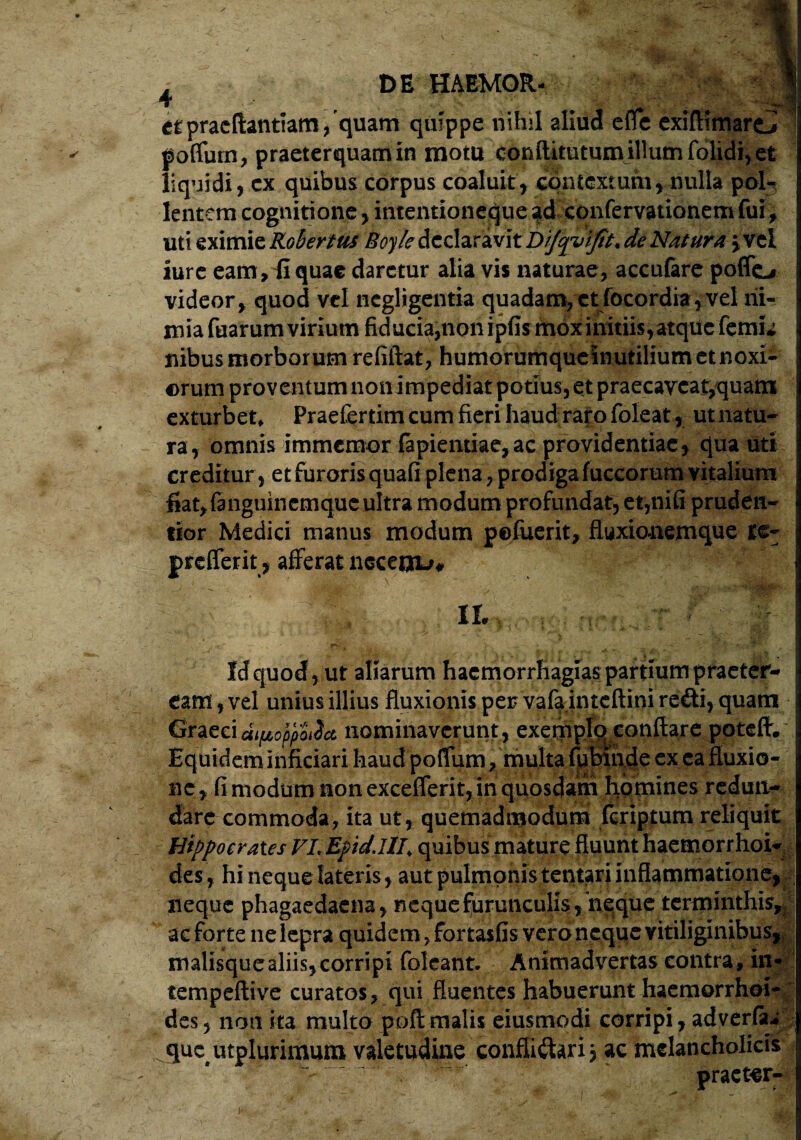 4 DE HAEMOR-
et praeſtantiam, quam quippe nihil aliud eſſe exiſtimare
poſſum, praeterquam in motu conſtitutum illum ſolidi, et
liquidi, ex quibus corpus coaluit, contextum, nulla pol-
lentem cognitione, intentioneque ad conſervationem ſui,
uti eximie Robertus Boyle declaravit Diſqviſit. de Natura; vel
iure eam, ſi quae daretur alia vis naturae, accuſare poſſe
videor, quod vel negligentia quadam, et ſocordia, vel ni-
mia ſuarum virium fiducia, non ipſis mox initiis, atque ſemi-
nibus morborum reſiſtat, humorumque inutilium et noxi-
orum proventum non impediat potius, et praecaveat, quam
exturbet. Praeſertim cum fieri haud raro ſoleat, ut natu-
ra, omnis immemor ſapientiae, ac providentiae, qua uti
creditur, et furoris quaſi plena, prodiga ſuccorum vitalium
fiat, ſanguinemque ultra modum profundat, et, niſi pruden-
tior Medici manus modum poſuerit, fluxionemque re-
preſſerit, afferat necem.
II.
Id quod, ut aliarum haemorrhagias partium praeter-
eam, vel unius illius fluxionis per vaſa inteſtini recti, quam
Graeci αἱμοῤῥοΐδα nominaverunt, exemplo conſtare poteſt.
Equidem inficiari haud poſſum, multa ſubinde ex ea fluxio-
ne, ſi modum non exceſſerit, in quosdam homines redun-
dare commoda, ita ut, quemadmodum ſcriptum reliquit
Hippocrates VI. Epid. III. quibus mature fluunt haemorrhoi-
des, hi neque lateris, aut pulmonis tentari inflammatione,
neque phagaedaena, neque furunculis, neque terminthis,
ac forte ne lepra quidem, fortasſis vero neque vitiliginibus,
malisque aliis, corripi ſoleant. Animadvertas contra, in-
tempeſtive curatos, qui fluentes habuerunt haemorrhoi-
des, non ita multo poſt malis eiusmodi corripi, adverſa-
que utplurimum valetudine conflictari; ac melancholicis
praeter-